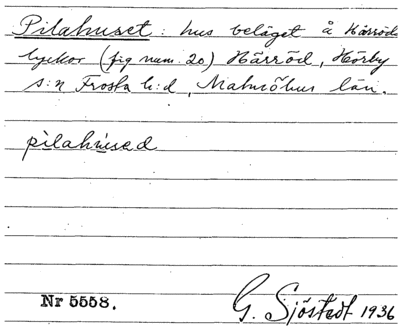 Pilahuset: hus beläget å Härröds
lyckor (fig num. 20) Härröd, Hörby
s:n Frosta h:d, Malmöhus län.
pilahused
Nr 5558.
G. Sjöstedt 1936